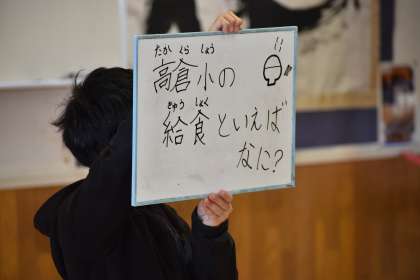 たか くら しょう
高倉小の
きゅう しょく
給食といえば
なに?